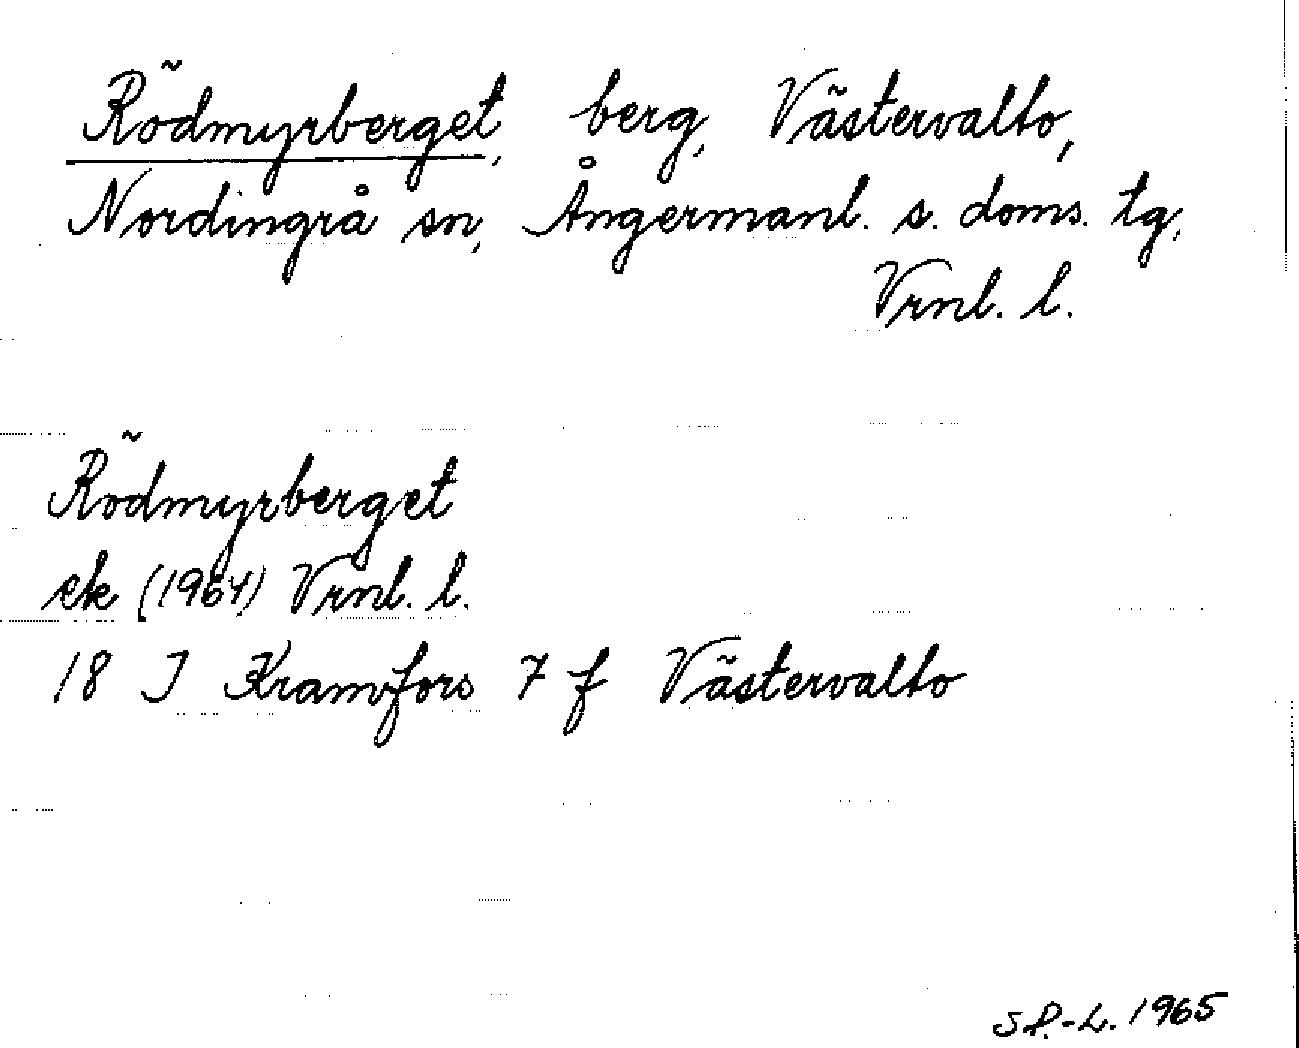 Rödmyrberget, berg, Västervalto,
Nordingrå sn, Ångermanl. s. doms. tg,
Vrnl. l.
Rödmyrberget
ek (1964) Vrnl. l.
18 I Kramfors 7 f Västervalto
SP.-L. 1965